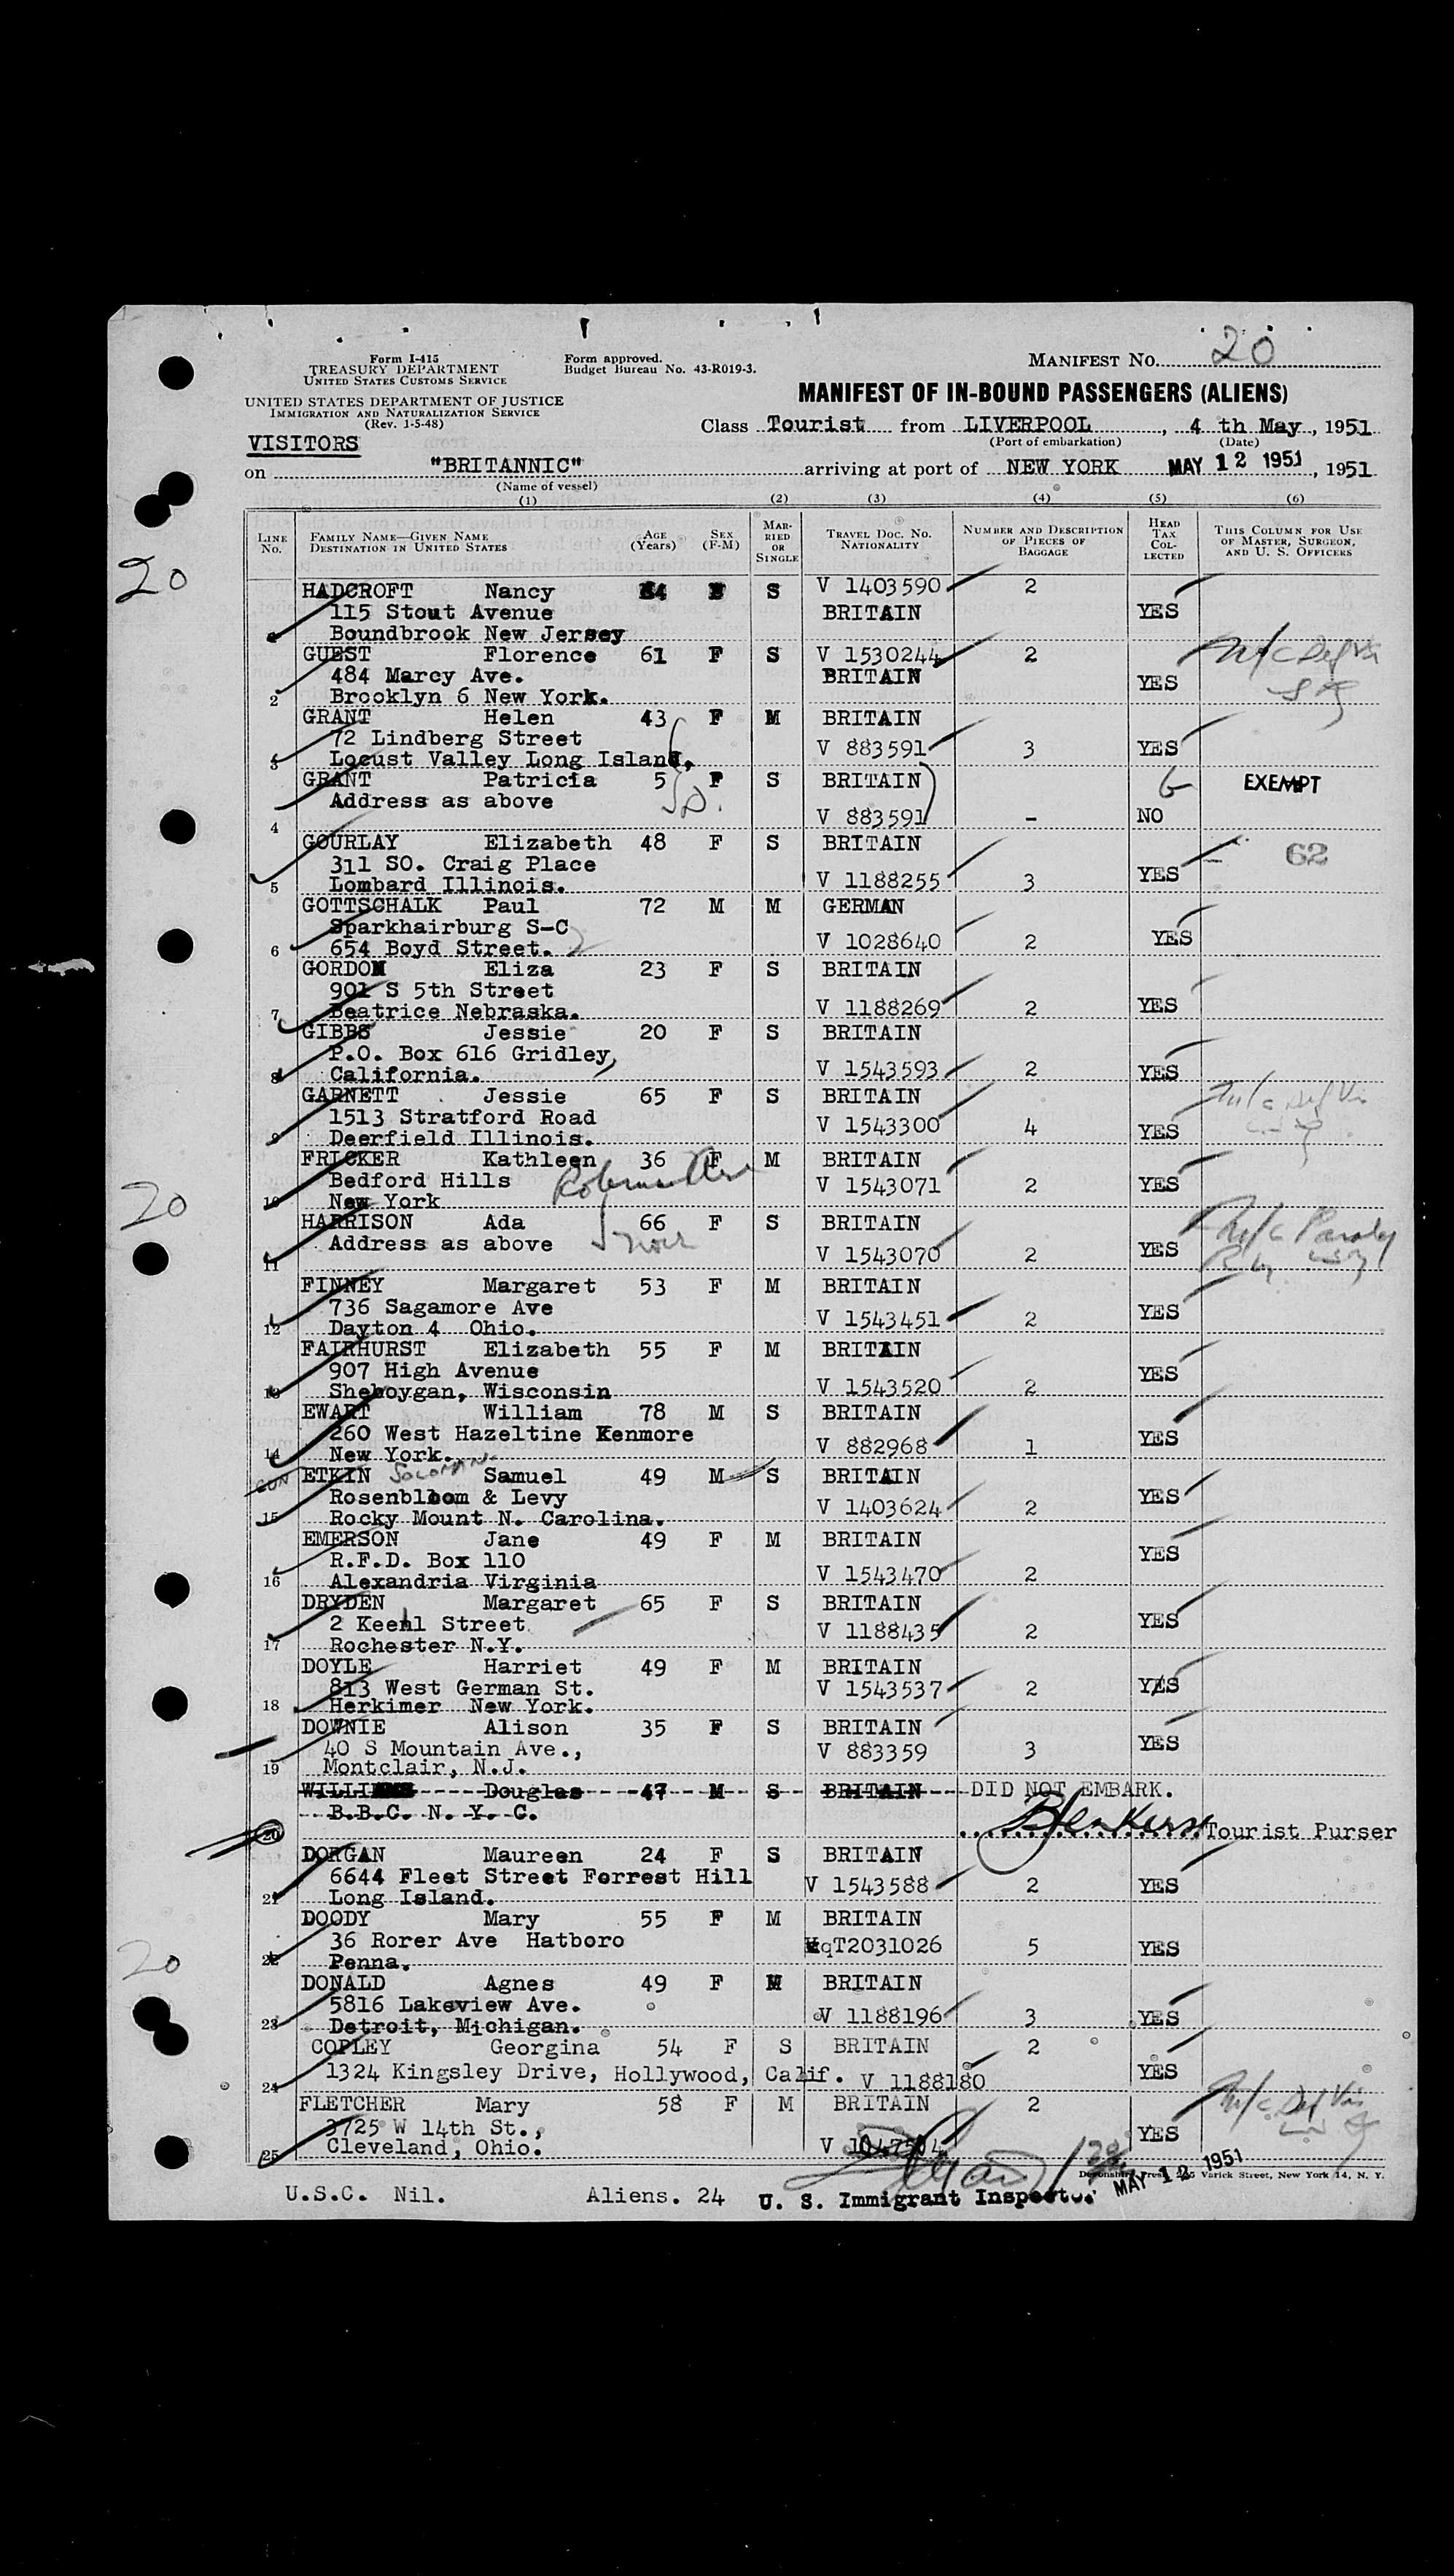 20
Form I-415
TREASURY DEPARTMENT
UNITED STATES CUSTOMS SERVICE
UNITED STATES DEPARTMENT OF JUSTICE
IMMIGRATION AND NATURALIZATION SERVICE
(Rev. 1-5-48)
Form approved.
Budget Bureau No. 43-R019-3.
MANIFEST NO. 20
MANIFEST OF IN-BOUND PASSENGERS (ALIENS)
Class Tourist from LIVERPOOL, 4 th May, 1951
(Port of embarkation) (Date)
VISITORS
on "BRITANNIC" arriving at port of NEW YORK MAY 12 1951, 1951
(Name of vessel)
(1) (2) (3) (4) (5) (6)
LINE NO. FAMILY NAME—GIVEN NAME DESTINATION IN UNITED STATES AGE (Years) SEX (F-M) MARRIED OR SINGLE TRAVEL DOC. NO. NATIONALITY NUMBER AND DESCRIPTION OF PIECES OF BAGGAGE HEAD TAX COLLECTED THIS COLUMN FOR USE OF MASTER, SURGEON, AND U. S. OFFICERS
20
HADCROFT Nancy S V 1403590 2
115 Stout Avenue BRITAIN YES
Boundbrook New Jersey
GUEST Florence 61 F S V 1530244 2
484 Marcy Ave. BRITAIN YES
2 Brooklyn 6 New York.
GRANT Helen 43 F M BRITAIN
72 Lindberg Street V 883591 3 YES
3 Locust Valley Long Island,
GRANT Patricia 5 F S BRITAIN EXEMPT
Address as above
4 V 883591 - NO
GOURLAY Elizabeth 48 F S BRITAIN 62
311 SO. Craig Place YES
5 Lombard Illinois. V 1188255 3
GOTTSCHALK Paul 72 M M GERMAN
Sparkhairburg S-C YES
6 654 Boyd Street. V 1028640 2
GORDON Eliza 23 F S BRITAIN
901 S 5th Street
7 Beatrice Nebraska. V 1188269 2 YES
GIBBS Jessie 20 F S BRITAIN
P.O. Box 616 Gridley,
8 California. V 1543593 2 YES
GARNETT Jessie 65 F S BRITAIN
1513 Stratford Road V 1543300 4 YES
9 Deerfield Illinois.
FRICKER Kathleen 36 F M BRITAIN
Bedford Hills V 1543071 2 YES
10 New York
20
HARRISON Ada 66 F S BRITAIN
Address as above V 1543070 2 YES
11
FINNEY Margaret 53 F M BRITAIN
736 Sagamore Ave YES
12 Dayton 4 Ohio. V 1543451 2
FAIRHURST Elizabeth 55 F M BRITAIN
907 High Avenue YES
13 Sheboygan, Wisconsin V 1543520 2
EWART William 78 M S BRITAIN
260 West Hazeltine Kenmore YES
14 New York. V 882968 1
ETKIN SOLOMAN Samuel 49 M S BRITAIN
Rosenbloom & Levy YES
15 Rocky Mount N. Carolina. V 1403624 2
EMERSON Jane 49 F M BRITAIN
R.F.D. Box 110 YES
16 Alexandria Virginia V 1543470 2
DRYDEN Margaret 65 F S BRITAIN
2 Keehl Street YES
17 Rochester N.Y. V 1188435 2
DOYLE Harriet 49 F M BRITAIN
813 West German St. V 1543537 2 YES
18 Herkimer New York.
DOWNIE Alison 35 F S BRITAIN
40 S Mountain Ave., V 883359 3 YES
19 Montclair, N.J.
WILLIAMS Douglas 47 M S BRITAIN DID NOT EMBARK.
B.B.C. N. Y. C.
20 Tourist Purser
DORGAN Maureen 24 F S BRITAIN
6644 Fleet Street Forrest Hill V 1543588 2 YES
21 Long Island.
DOODY Mary 55 F M BRITAIN
36 Rorer Ave Hatboro qT2031026 5 YES
22 Penna.
20
DONALD Agnes 49 F M BRITAIN
5816 Lakeview Ave.
23 Detroit, Michigan. V 1188196 3 YES
COPLEY Georgina 54 F S BRITAIN 2
1324 Kingsley Drive, Hollywood, Calif. V 1188180 YES
24
FLETCHER Mary 58 F M BRITAIN 2
3725 W 14th St.,
25 Cleveland, Ohio. V YES
Varick Street, New York 14, N. Y.
U.S.C. Nil. Aliens. 24 U. S. Immigrant Inspector MAY 12 1951